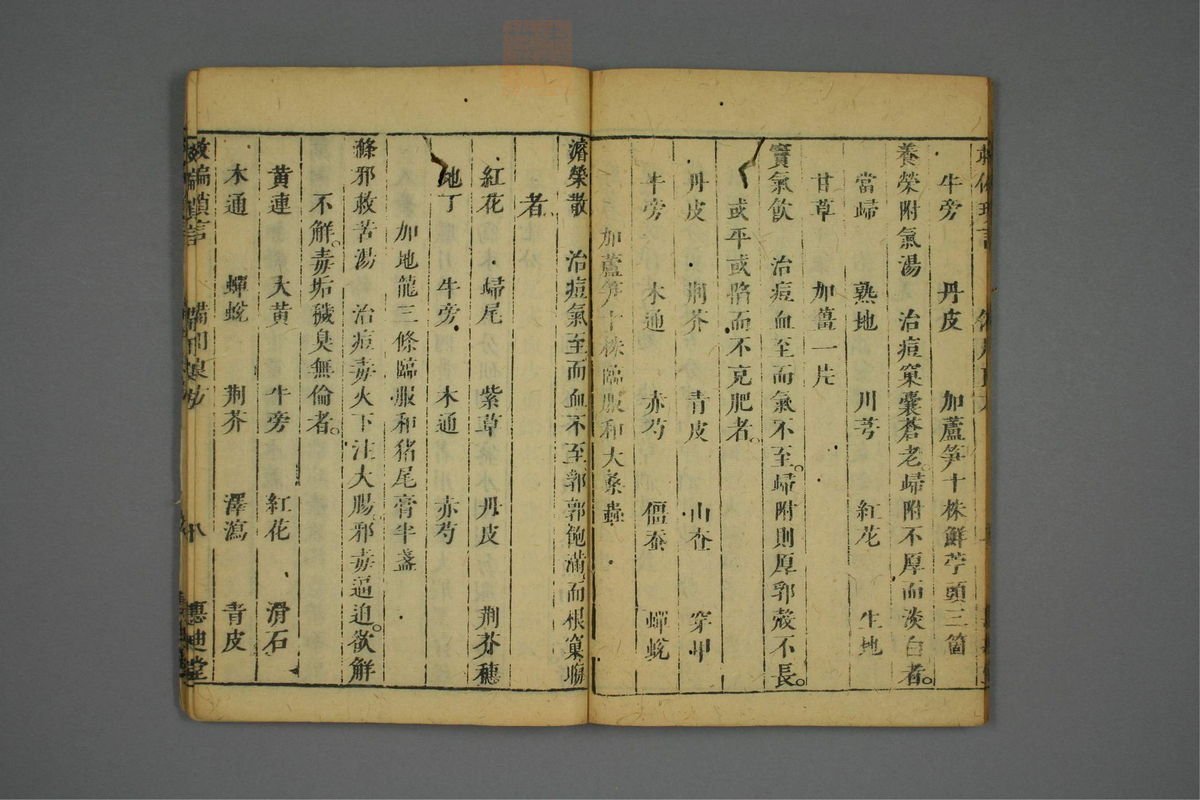 牛旁 丹皮 加蘆笋十株鮮苧頭三箇
養榮附氣湯 治痘窠囊蒼老歸附不厚而淡白者。
當歸 熟地 川芎 紅花 生地
甘草 加薑一片
實氣飲 治痘血至而氣不至。歸附則厚郭殻不長。
或平或陷而不克肥者。
丹皮 荆芥 青皮 山査 穿甲
牛旁 木通 赤芍 僵蚕 蟬蛻
加蘆笋十株臨服和大桑蟲
溶榮散 治痘氣至而血不至郭郭飽滿而根窠
者
紅花 歸尾 紫草 丹皮 荆芥穗
地丁 牛旁 木通 赤芍
加地龍三條臨服和猪尾膏半盞
滌邪救苦湯 治痘毒火下注大腸。邪毒逼迫。欲解
不解。毒垢穢臭無倫者。
黃連 大黃 牛旁 紅花 滑石
木通 蟬蛻 荆芥 澤瀉 青皮
救偏瑣言 備用良方 八 惠迪堂